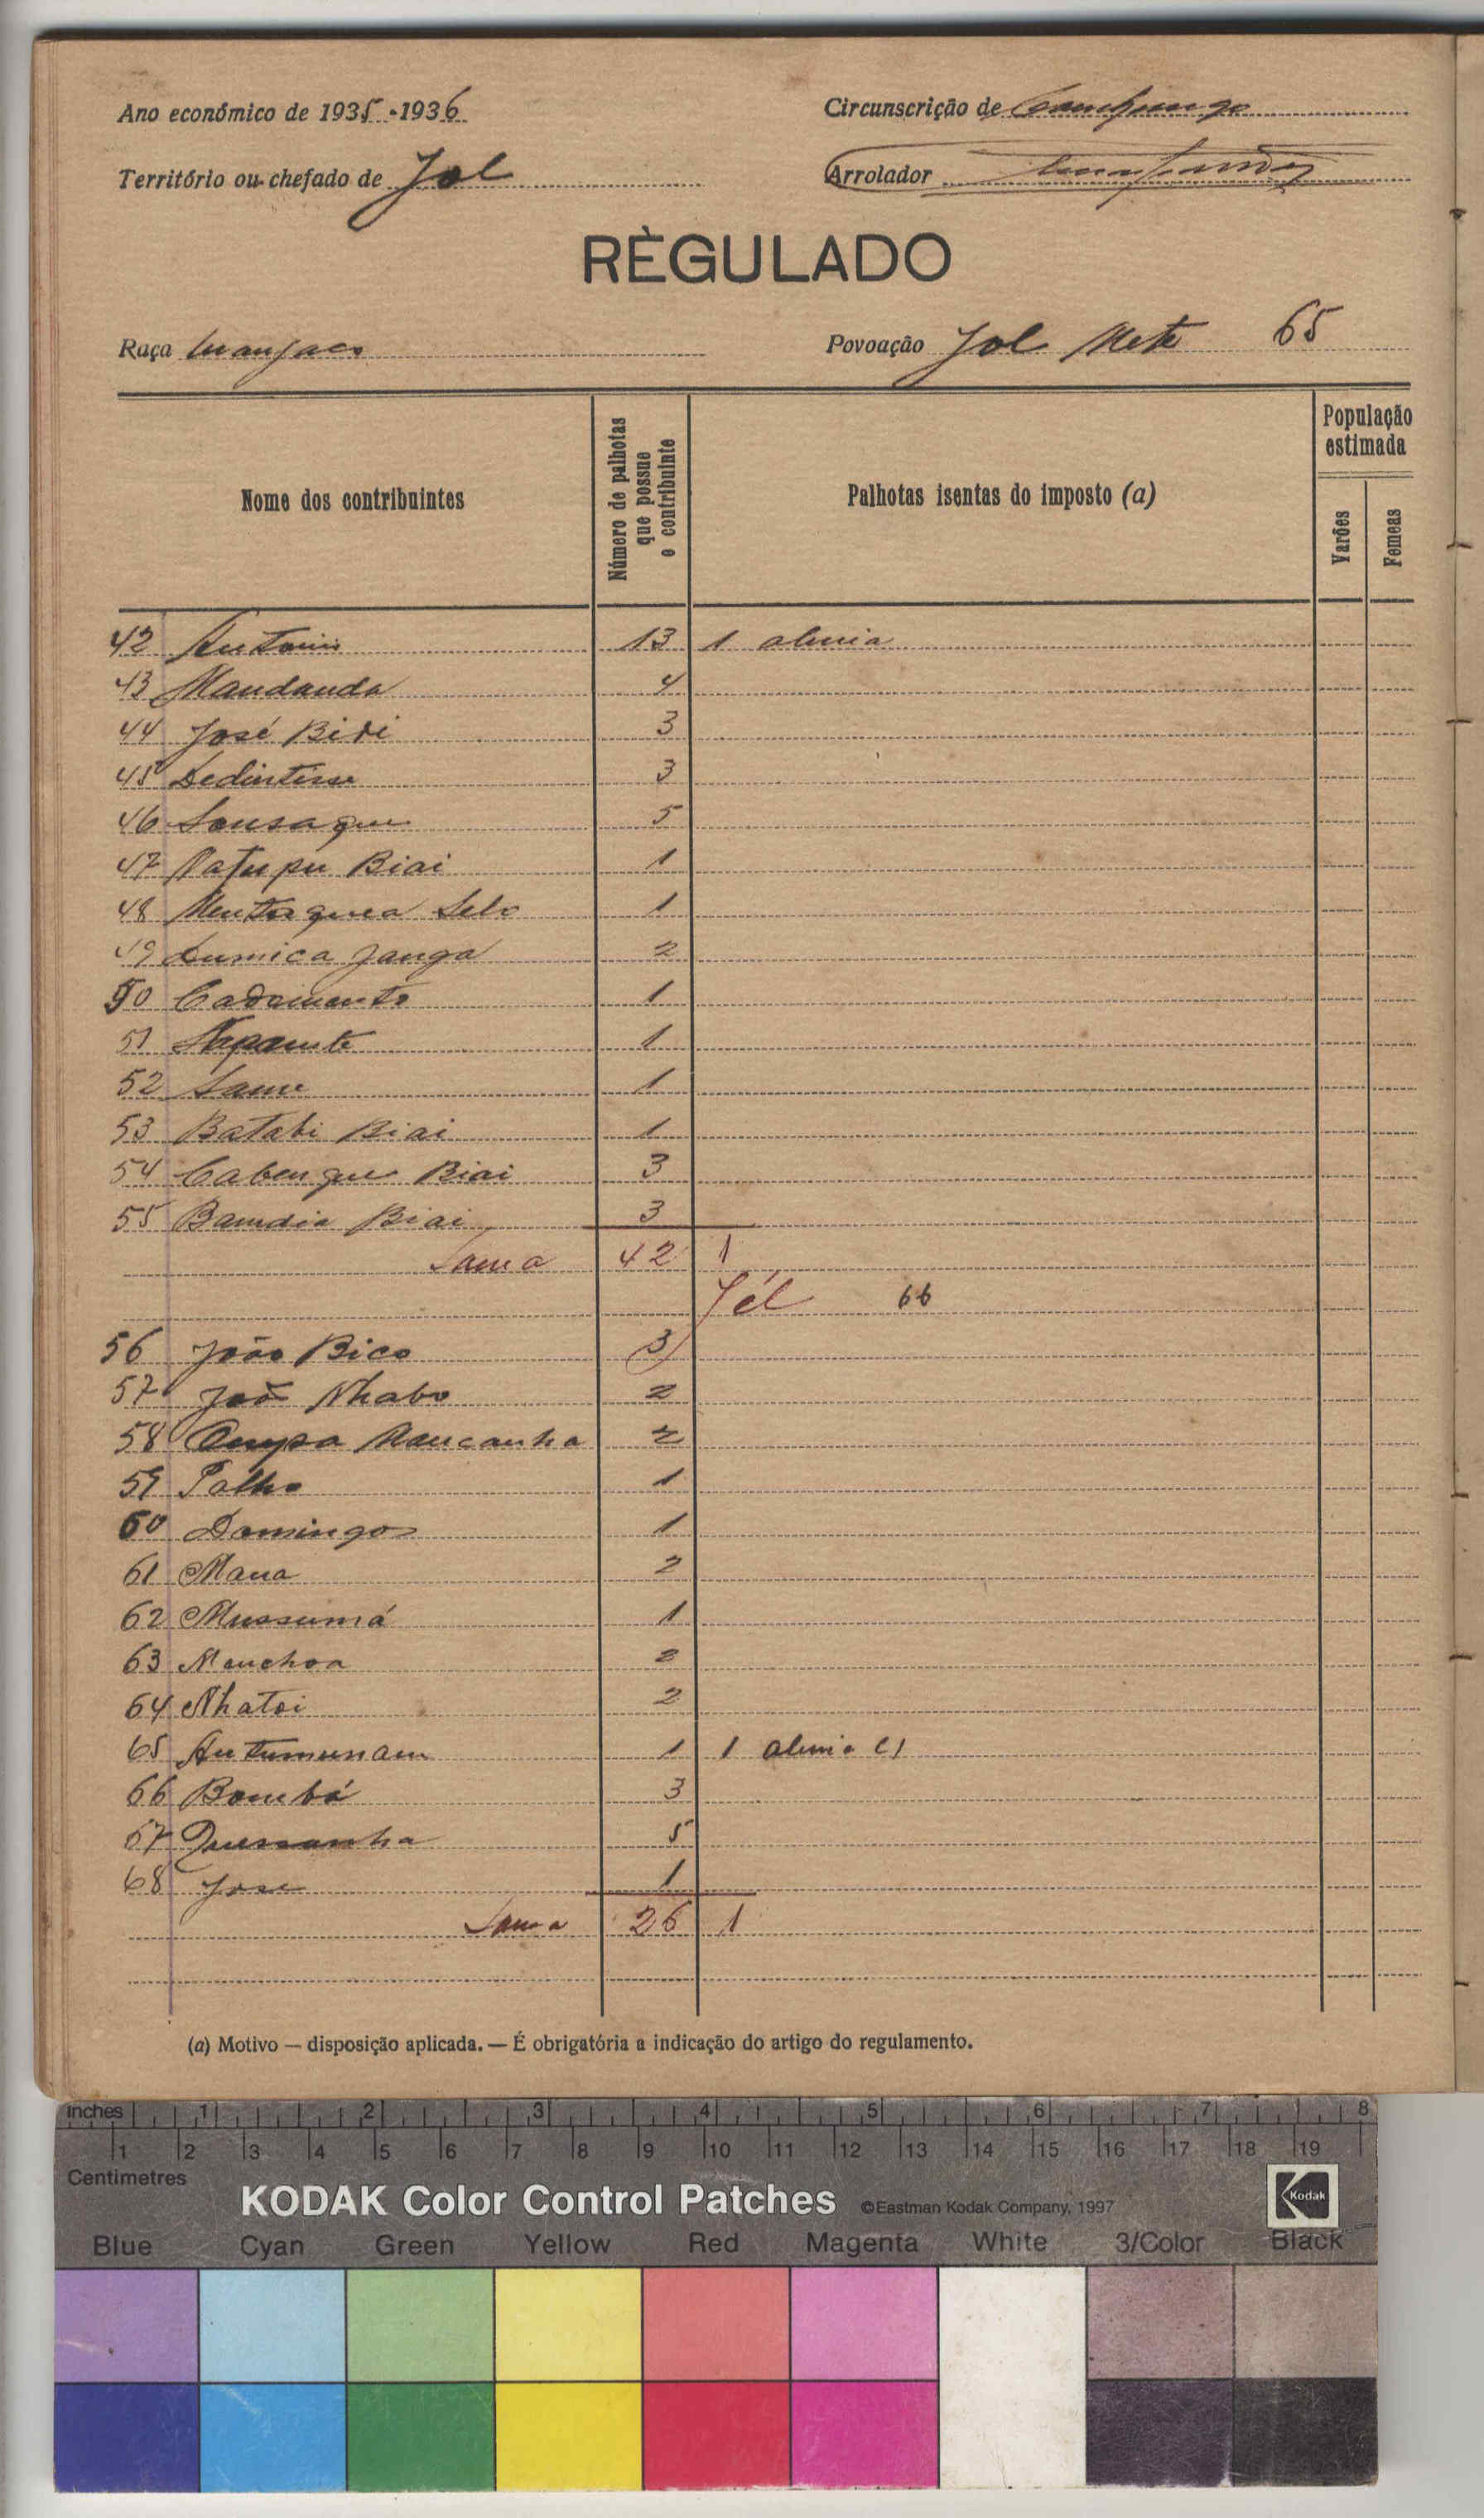 Ano económico de 1935-1936
Circunscrição de Canchungo
Território ou chefado de Jol
Arrolador
RÈGULADO
Raça Manjaco
Povoação Jol Mete 65
Nome dos contribuintes
Número de palhotas que possue o contribuinte
Palhotas isentas do imposto (a)
População estimada
Varões
Femeas
42 Antonio 13 1
43 Mandanda 4
44 José Bidi 3
45 3
46 Sousaque 5
47 Biai 1
48 1
49 Lumica Janga 2
50 Cadomento 1
51 1
52 1
53 Batabi Biai 1
54 Cabenque Biai 3
55 Bamdia Biai 3
Soma 42 1
Jól 66
56 João Bico 3
57 João Nhabo 2
58 Mancanha 2
59 1
60 Domingos 1
61 Mana 2
62 Mussumá 1
63 Manchoa 2
64 Nhatoi 2
65 1 1
66 Bombó 3
67 5
68 Jose 1
Soma 26 1
(a) Motivo — disposição aplicada. — É obrigatória a indicação do artigo do regulamento.
Inches 1 2 3 4 5 6 7 8
1 2 3 4 5 6 7 8 9 10 11 12 13 14 15 16 17 18 19
Centimetres
KODAK Color Control Patches ©Eastman Kodak Company, 1997 Kodak
Blue Cyan Green Yellow Red Magenta White 3/Color Black